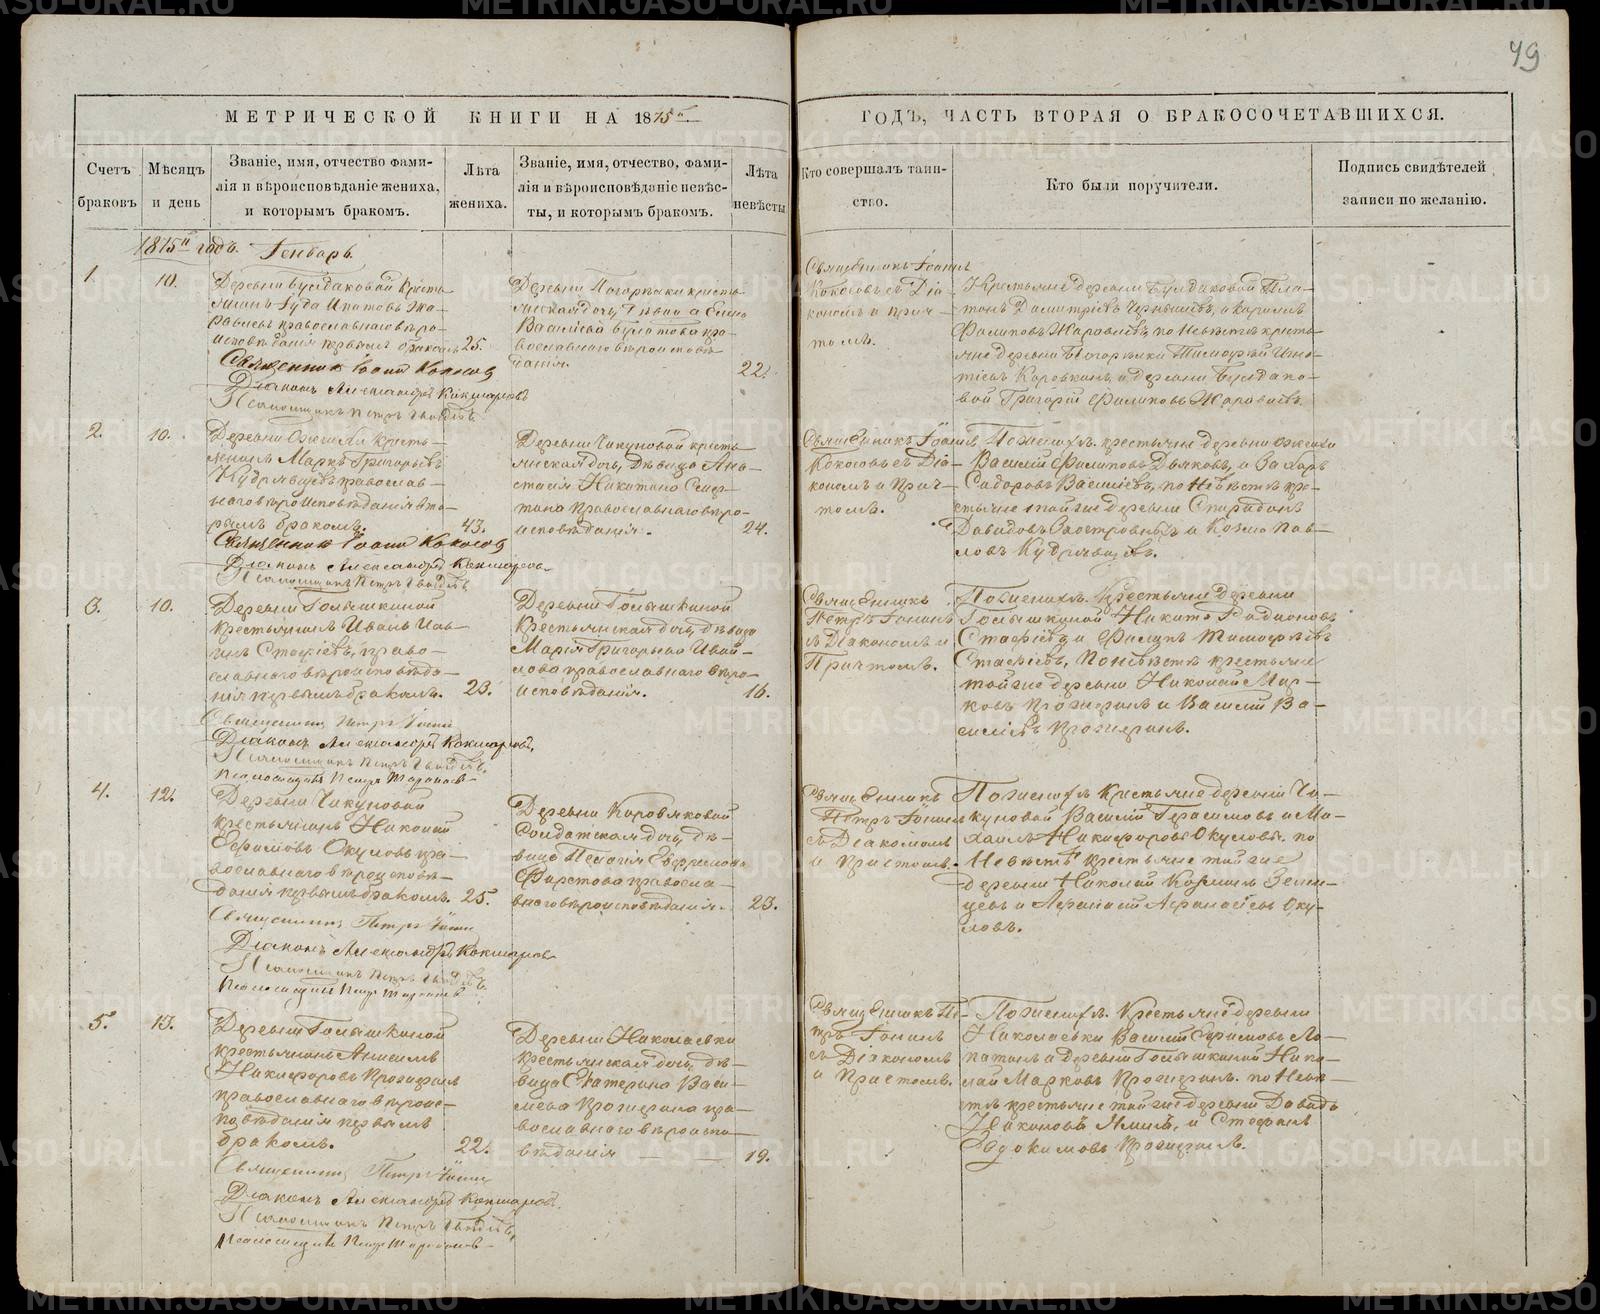 79
МЕТРИЧЕСКОЙ КНИГИ НА 1875й
ГОДЪ, ЧАСТЬ ВТОРАЯ О БРАКОСОЧЕТАВШИХСЯ.
Счетъ браковъ
Мѣсяцъ и день
Званіе, имя, отчество фами-
лія и вѣроисповѣданіе жениха,
и которымъ бракомъ.
Лѣта
жениха.
Званіе, имя, отчество, фами-
лія и вѣроисповѣданіе невѣс-
ты, и которымъ бракомъ.
Лѣта
невѣсты
Кто совершалъ таин-
ство.
Кто были поручители.
Подпись свидѣтелей
записи по желанію.
1875й годъ. Генварь.
1.
10.
Деревни Булдаковой кресть-
янинъ Іуда Ипатовъ Жа-
равлевъ православнаго вѣро-
исповѣданія первымъ бракомъ
25.
Священникъ Іоаннъ Кокосов
Діаконъ Александръ Кокшаровъ
Псаломщикъ Петръ
Деревни Погорѣлки кресть-
янская дочь, дѣвица
Васильева Булатова пра-
вославнаго вѣроисповѣ-
данія.
22.
Священникъ Іоаннъ
Кокосовъ съ Діа-
кономъ и прич-
томъ.
Крестьяне деревни Булдаковой Пла-
тонъ Димитріевъ Чернышевъ, и Карпъ
Филиповъ Жаравлевъ, по невѣстѣ кресть-
яне деревни Погорѣлки Тимофей Игна-
тьевъ Коровкинъ, и деревни Булдако-
вой Григорій Филиповъ Жаравлевъ.
2.
10.
Деревни Ожегихи кресть-
янинъ Маркъ Григорьевъ
Кудрявцевъ православ-
наго вѣроисповѣданія вто-
рымъ бракомъ.
43.
Священникъ Іоаннъ Кокосов
Діаконъ Александръ Кокшаровъ
Псаломщикъ Петръ
Деревни Чикуновой кресть-
янская дочь, дѣвица Ана-
стасія Никитина
православнаго вѣро-
исповѣданія.
24.
Священникъ Іоаннъ
Кокосовъ съ Діа-
кономъ и Прич-
томъ.
По женихѣ. крестьяне деревни Ожегихи
Василій Филиповъ Дьяковъ, и Захаръ
Сидоровъ Васильевъ, по невѣстѣ кре-
стьяне той же деревни Спиридонъ
Давидовъ Заостровныхъ и Козма Пав-
ловъ Кудрявцевъ.
3.
10.
Деревни Голышкиной
крестьянинъ Иванъ
Стафѣевъ, право-
славнаго вѣроисповѣда-
нія первымъ бракомъ.
23.
Священникъ Петръ Іонинъ
Діаконъ Александръ Кокшаровъ,
Псаломщикъ Петръ
Псаломщикъ Петръ
Деревни Голышкиной
крестьянская дочь, дѣвица
Марія Григорьева
православнаго вѣро-
исповѣданія.
16.
Священникъ
Петръ Іонинъ
съ Діакономъ и
Причтомъ.
По женихѣ. Крестьяне деревни
Голышкиной Никита Родіоновъ
Стафѣевъ и Филипъ Тимофѣевъ
Стафѣевъ, По невѣстѣ крестьяне
той же деревни Николай Мар-
ковъ Прожеринъ и Василій Ва-
сильевъ Прожеринъ.
4.
12.
Деревни Чикуновой
крестьянинъ Николай
Ефимовъ Окуловъ пра-
вославнаго вѣроисповѣ-
данія первымъ бракомъ.
25.
Священникъ Петръ Іонинъ
Діаконъ Александръ Кокшаровъ
Псаломщикъ Петръ
Псаломщикъ Петръ
Деревни Коровяковой
Солдатская дочь, дѣ-
вица Пелагія Евфимова
Фирстова правосла-
внаго вѣроисповѣданія.
23.
Священникъ
Петръ Іонинъ
съ Діакономъ
и Причтомъ.
По женихѣ крестьяне деревни Чи-
куновой Василій Герасимовъ и Ми-
хаилъ Никифоровъ Окуловы. по
Невѣстѣ крестьяне той же
деревни Николай Козминъ
и Афанасій Афанасьевъ Оку-
ловъ.
5.
13.
Деревни Голышкиной
крестьянинъ Анисимъ
Никифоровъ Прожеринъ
православнаго вѣроис-
повѣданія первымъ
бракомъ.
22.
Священникъ Петръ Іонинъ
Діаконъ Александръ Кокшаровъ.
Псаломщикъ Петръ
Псаломщикъ Петръ
Деревни Николаевки
крестьянская дочь, дѣ-
вица Екатерина Васи-
льева Прожерина пра-
вославнаго вѣроиспо-
вѣданія
19.
Священникъ Пе-
тръ Іонинъ
съ Діакономъ
и Причтомъ.
По женихѣ. Крестьяне деревни
Николаевки Василій Ефимовъ Ло-
патинъ и деревни Голышкиной Нико-
лай Марковъ Прожеринъ. по Невѣ-
стѣ крестьяне той же деревни Давидъ
Никоновъ и Стефанъ
Евдокимовъ Прожеринъ.